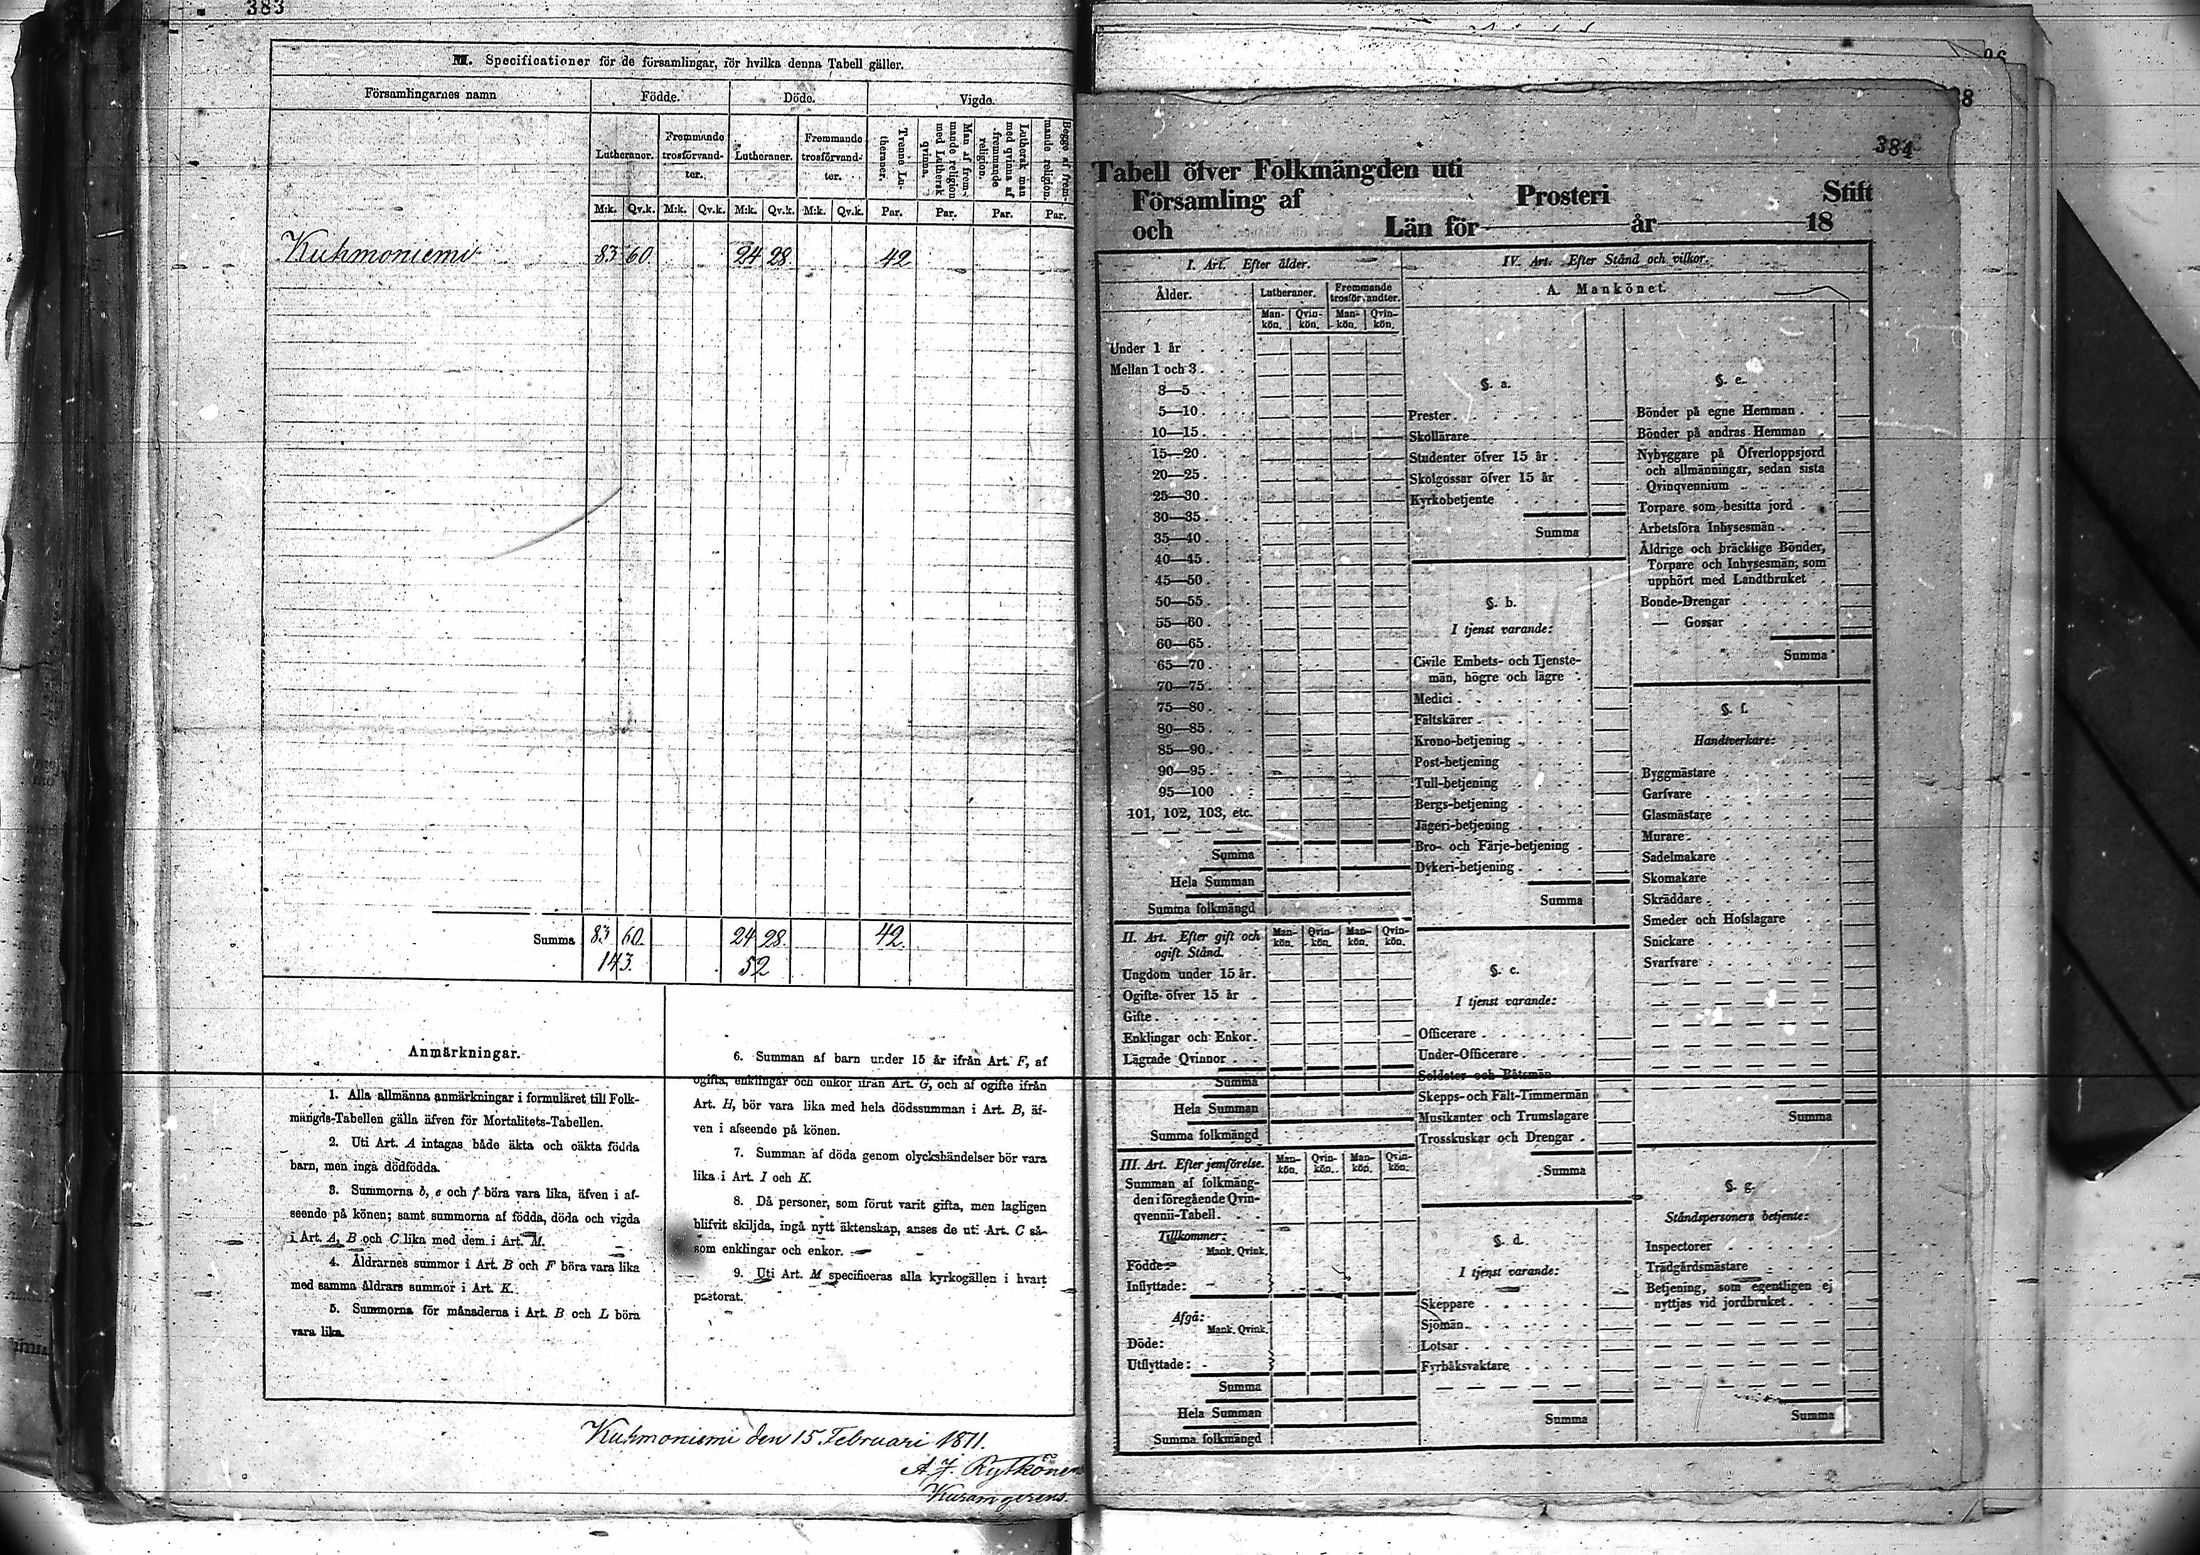 383
M. Specificationer för de församlingar, för hvilka denna Tabell gäller.
Församlingarnes namn
Födde.
Döde.
Vigde.
Lutheraner.
Fremmande trosförvandter.
Lutheraner.
Fremmande trosförvandter.
Tvenne Lutheraner.
Man af fremmande religion med Luthersk qvinna.
Luthersk man med qvinna af fremmande religion.
Begge af fremmande religion.
M:k. Qv.k. M:k. Qv.k. M:k. Qv.k. M:k. Qv.k. Par. Par. Par. Par.
Kuhmoniemi 83 60. 24 28. 42
Summa 83 60. 24 28. 42.
143. 52
Anmärkningar.
1. Alla allmänna anmärkningar i formuläret till Folk-
mängds-Tabellen gälla äfven för Mortalitets-Tabellen.
2. Uti Art. A intagas både äkta och oäkta födda
barn, men inga dödfödda.
3. Summorna b, e och f böra vara lika, äfven i af-
seende på könen; samt summorna af födda, döda och vigda
i Art. A, B och C lika med dem i Art. M.
4. Åldrarnes summor i Art. B och F böra vara lika
med samma åldrars summor i Art. K.
5. Summorna för månaderna i Art. B och L böra
vara lika.
6. Summan af barn under 15 år ifrån Art. F, af
ogifta, enklingar och enkor ifrån Art. G, och af ogifte ifrån
Art. H, bör vara lika med hela dödssumman i Art. B, äf-
ven i afseende på könen.
7. Summan af döda genom olyckshändelser bör vara
lika i Art. I och K.
8. Då personer, som förut varit gifta, men lagligen
blifvit skiljda, ingå nytt äktenskap, anses de uti Art. C så-
som enklingar och enkor.
9. Uti Art. M specificeras alla kyrkogällen i hvart
pastorat.
Kuhmoniemi den 15 Februari 1871.
A. F. Rytkönen
384
Tabell öfver Folkmängden uti
Församling af Prosteri Stift
och Län för år 18
I. Art. Efter ålder.
Ålder.
Lutheraner.
Fremmande trosförvandter.
Man-kön. Qvin-kön. Man-kön. Qvin-kön.
Under 1 år
Mellan 1 och 3
3—5
5—10
10—15
15—20
20—25
25—30
30—35
35—40
40—45
45—50
50—55
55—60
60—65
65—70
70—75
75—80
80—85
85—90
90—95
95—100
101, 102, 103, etc.
Summa
Hela Summan
Summa folkmängd
II. Art. Efter gift och
ogift Stånd.
Man-kön. Qvin-kön. Man-kön. Qvin-kön.
Ungdom under 15 år.
Ogifte öfver 15 år
Gifte
Enklingar och Enkor.
Lägrade Qvinnor
Summa
Hela Summan
Summa folkmängd
III. Art. Efter jemförelse.
Man-kön. Qvin-kön. Man-kön. Qvin-kön.
Summan af folkmäng-
den i föregående Qvin-
qvennii-Tabell.
Tillkommer:
Mank. Qvink.
Födde:
Inflyttade:
Afgå:
Mank. Qvink.
Döde:
Utflyttade:
Summa
Hela Summan
Summa folkmängd
IV. Art. Efter Stånd och vilkor.
A. Mankönet.
§. a.
Prester
Skollärare
Studenter öfver 15 år
Skolgossar öfver 15 år
Kyrkobetjente
Summa
§. b.
I tjenst varande:
Civile Embets- och Tjenste-
män, högre och lägre
Medici
Fältskärer
Krono-betjening
Post-betjening
Tull-betjening
Bergs-betjening
Jägeri-betjening
Bro- och Färje-betjening
Dykeri-betjening
Summa
§. c.
I tjenst varande:
Officerare
Under-Officerare
Soldater och Båtsmän
Skepps- och Fält-Timmermän
Musikanter och Trumslagare
Trosskuskar och Drengar
Summa
§. d.
I tjenst varande:
Skeppare
Sjömän
Lotsar
Fyrbåksvaktare
Summa
§. e.
Bönder på egne Hemman
Bönder på andras Hemman
Nybyggare på Öfverloppsjord
och allmänningar, sedan sista
Qvinqvennium
Torpare som besitta jord
Arbetsföra Inhysesmän
Åldrige och bräcklige Bönder,
Torpare och Inhysesmän, som
upphört med Landtbruket
Bonde-Drengar
— Gossar
Summa
§. f.
Handtverkare:
Byggmästare
Garfvare
Glasmästare
Murare
Sadelmakare
Skomakare
Skräddare
Smeder och Hofslagare
Snickare
Svarfvare
Summa
§. g.
Ståndspersoners betjente:
Inspectorer
Trädgårdsmästare
Betjening, som egentligen ej
nyttjas vid jordbruket
Summa